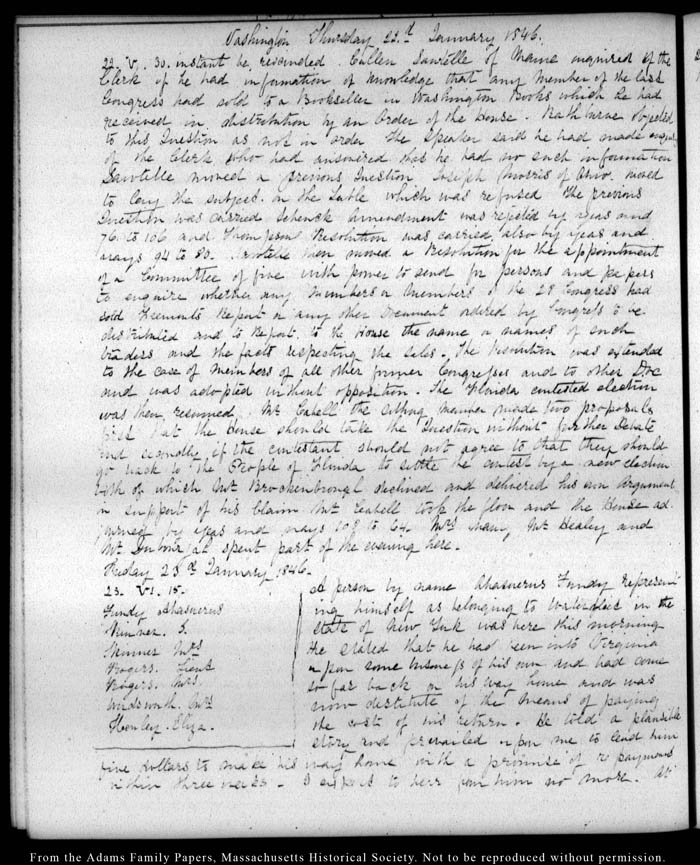 Washington Thursday 22.d January 1846.
22. V. 30. instant be rescinded. Cullen Sawtelle of Maine enquired of the
Clerk if he had information or knowledge that any Member of the last
Congress had sold to a Bookseller in Washington Books which he had
received in distribution by an Order of the House. Rathburn objected
to this Question as not in order. The Speaker said he had made enquiry
of the Clerk who had answered that he had no such information
Sawtelle moved a previous Question Joseph Morris of Ohio. moved
to lay the subject on the table which was refused The previous
Question was carried Schenck amendment was rejected by yeas and
76 to 106 and Thompson Resolution was carried also by yeas and
nays 94 to 80. Sawtelle then moved a Resolution for the appointment
of a Committee of five with power to send for persons and papers
to enquire whether any Members or members of the 28 Congress had
sold Fremonts Report or any other Document ordered by Congress to be
distributed and to Report to the House the name or names of such
traders and the facts respecting the sales. The Resolution was extended
to the case of Members of all other former Congresses and to other Doc
and was adopted without opposition. The Florida contested election
was then resumed. Mr Cabell the sitting member made two proposals
first that the House should take the Question without further debate
and secondly if the contestant should not agree to that they should
go back to the People of Florida to settle the contest by a new election
both of which Mr Brockenbrough declined and delivered his own Argument
in support of his claim Mr Cabell took the floor and the House ad
journed by yeas and nays 108 to 64. Mrs Shaw, Mr Healey and
Mr at spent part of the evening here.
Friday 23.d January 1846.
23. VI. 15.
Fundy Ahasuerus
Skinner. S.
Skinner Mrs
Rogers. Lieut
Rogers. Mrs.
Wadsworth. Mrs
Henley. Eliza.
A person by name Ahasuerus Fundy represent
ing himself as belonging to in the
State of New York was here this morning
He stated that he had been into Virginia
upon some business of his own and had come
so far back on his way home and was
now destitute of the means of paying
the costs of his return. He told a plausible
story and prevailed upon me to lend him
five dollars to make his way home with a promise of repayment
within three weeks. I expect to hear from him no more. At
From the Adams Family Papers, Massachusetts Historical Society. Not to be reproduced without permission.